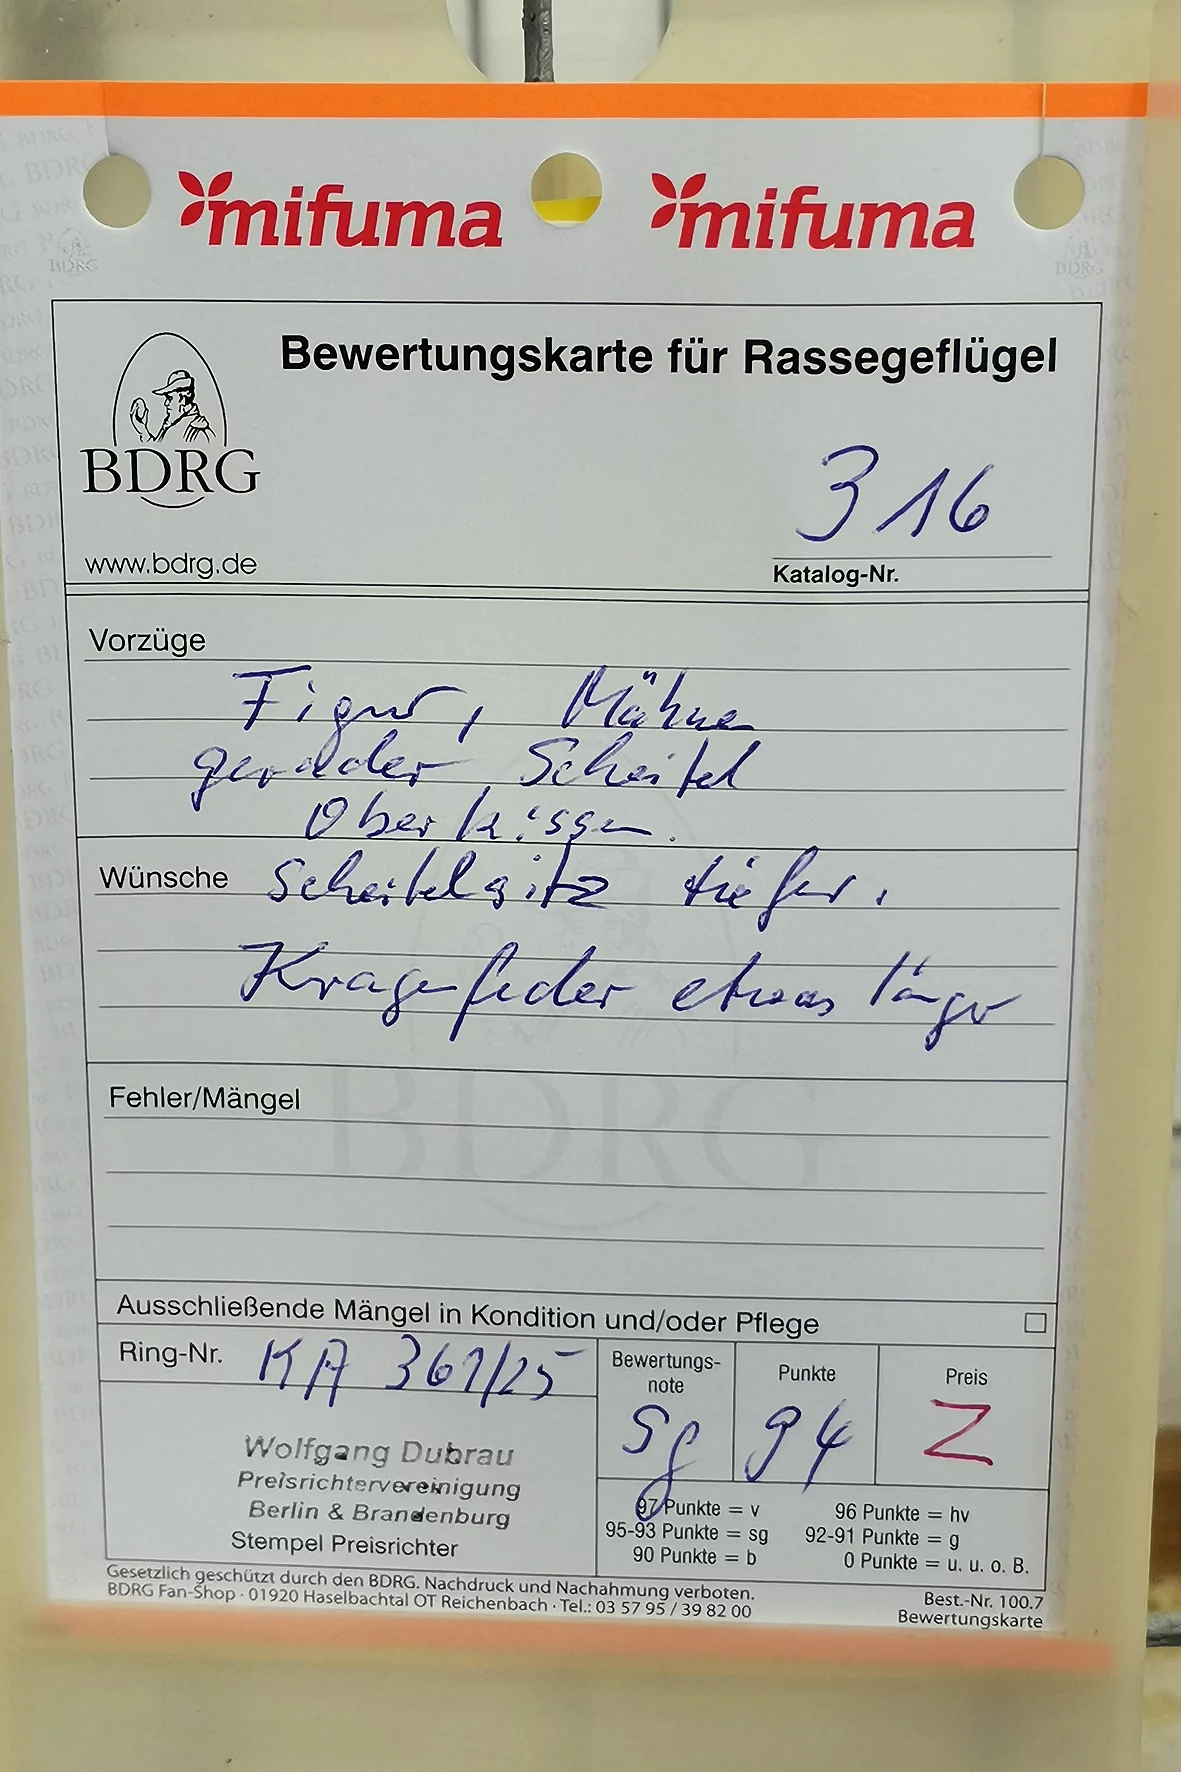 mifuma mifuma
Bewertungskarte für Rassegeflügel
BDRG
316
www.bdrg.de
Katalog-Nr.
Vorzüge
Figur, Mähne
gerader Scheitel
Oberkissen.
Wünsche Scheitelsitz tiefer.
Kragenfeder etwas länger
Fehler/Mängel
BDRG
Ausschließende Mängel in Kondition und/oder Pflege
Ring-Nr. KA 361/25
Bewertungs-
note
Punkte
Preis
sg 94 Z
Wolfgang Dubrau
Preisrichtervereinigung
Berlin & Brandenburg
Stempel Preisrichter
97 Punkte = v 96 Punkte = hv
95-93 Punkte = sg 92-91 Punkte = g
90 Punkte = b 0 Punkte = u. u. o. B.
Gesetzlich geschützt durch den BDRG. Nachdruck und Nachahmung verboten.
BDRG Fan-Shop · 01920 Haselbachtal OT Reichenbach · Tel.: 03 57 95 / 39 82 00
Best.-Nr. 100.7
Bewertungskarte